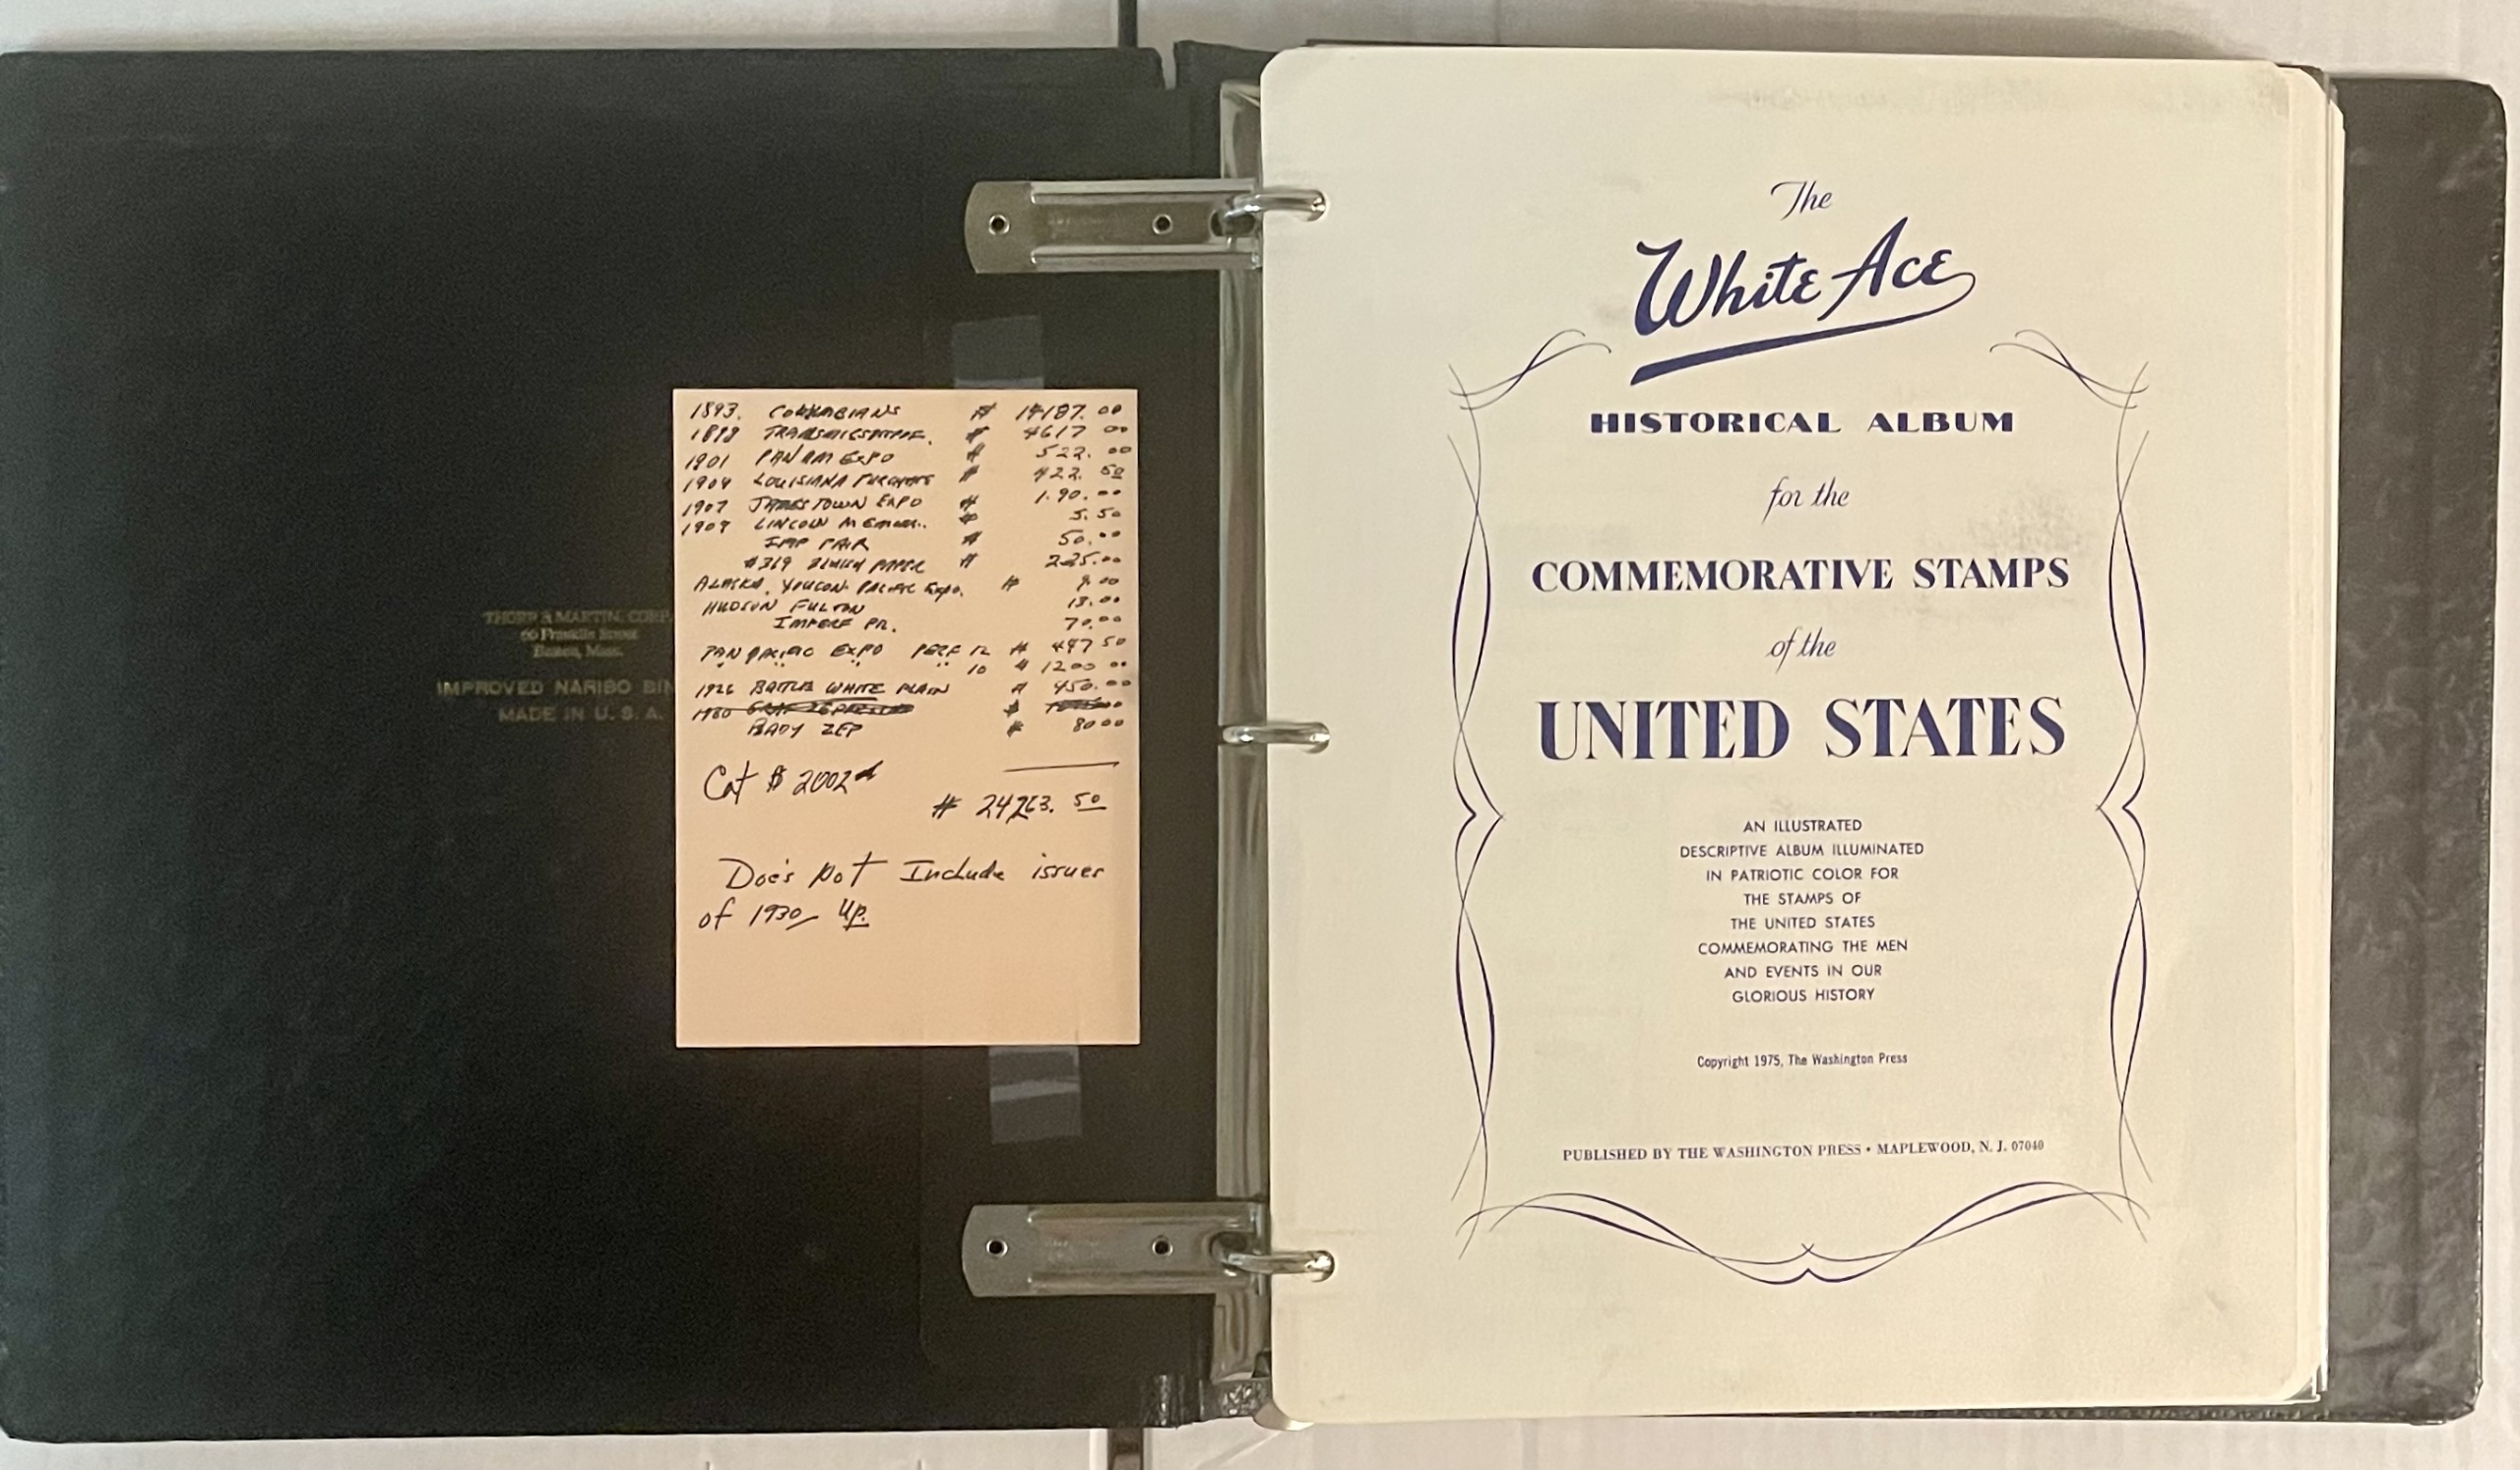 1893. COLUMBIANS $ 14187.00
1898 TRANSMISSIPPI $ 4617 00
1901 PAN AM EXPO $ 522.00
1904 LOUISIANA PURCHASE $ 422.50
1907 JAMESTOWN EXPO $ 1.90.00
1909 LINCOLN $ 5.50
IMP PAIR $ 50.00
#369 PAPER $ 225.00
ALASKA, YOUCON. PACIFIC Expo. $ 9.00
HUDSON FULTON 13.00
IMPERF PR. 70.00
PAN PACIFIC EXPO PERF 12 $ 497 50
" " " " 10 $ 1200 00
1926 BATTLE WHITE PLAIN $ 450.00
1930 $
BABY ZEP $ 80 00
Cat $ 2002
$ 24,263. 50
Does Not Include issues
of 1930 Up.
THORP & MARTIN. CORP.
60 Franklin Street
Boston, Mass.
IMPROVED NARIBO BIN
MADE IN U. S. A.
The
White Ace
HISTORICAL ALBUM
for the
COMMEMORATIVE STAMPS
of the
UNITED STATES
AN ILLUSTRATED
DESCRIPTIVE ALBUM ILLUMINATED
IN PATRIOTIC COLOR FOR
THE STAMPS OF
THE UNITED STATES
COMMEMORATING THE MEN
AND EVENTS IN OUR
GLORIOUS HISTORY
Copyright 1975, The Washington Press
PUBLISHED BY THE WASHINGTON PRESS • MAPLEWOOD, N. J. 07040